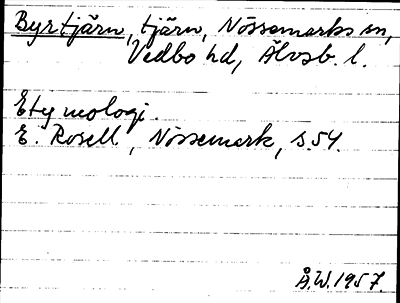 Byrtjärn, tjärn, Nössemarks sn,
Vedbo hd, Älvsb. l.
Etymologi.
E. Rosell, Nössemark, s 54.
Å.W. 1957.